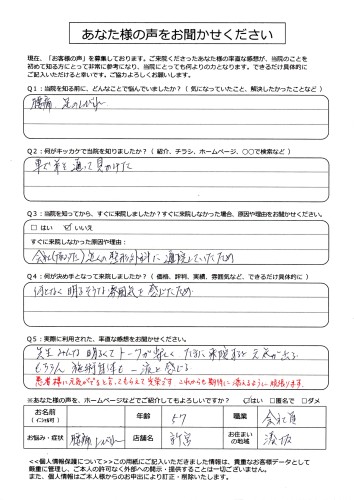 あなた様の声をお聞かせください
現在、「お客様の声」を募集しております。ご来院くださったあなた様の率直な感想が、当院のことを
初めて知る方にとって非常に参考になり、当院にとっても何よりの力となります。できるだけ具体的に
ご記入いただけると幸いです。ご協力よろしくお願いします。
Q1:当院を知る前に、どんなことで悩んでいましたか?(気になっていたこと、解決したかったことなど)
腰痛、足のしびれ
Q2:何がキッカケで当院を知りましたか?(紹介、チラシ、ホームページ、○○で検索など)
車で前を通って見かけた
Q3:当院を知ってから、すぐに来院しましたか?すぐに来院しなかった場合、原因や理由をお聞かせください。
□ はい ☑ いいえ
すぐに来院しなかった原因や理由:
近くの整形外科に通院していたため
Q4:何が決め手となって来院しましたか?(価格、評判、実績、雰囲気など、できるだけ具体的に)
何となく明るそうな雰囲気を感じたため
Q5:実際に利用された、率直な感想をお聞かせください。
先生みんな明るくてトークが楽しく たびに来院すると元気が出る。
もちろん 施術自体も一流と感じる。
患者様に元気がでると言ってもらえて光栄です これからも期待に添えるように頑張ります。
※あなた様の声を、ホームページなどでご紹介してもよろしいですか? ☑はい □匿名で □ダメ
お名前
(イニシャル可)
年齢
57
職業
会社員
お悩み・症状
腰痛 しびれ
店舗名
お住まい
の地域
<<個人情報保護について>>この用紙にご記入いただきました情報は、貴重なお客様データとして
厳重に管理し、ご本人の許可なく外部への開示・提供することは一切ございません。
また、個人情報はご本人様からのお申出により訂正・削除いたします。